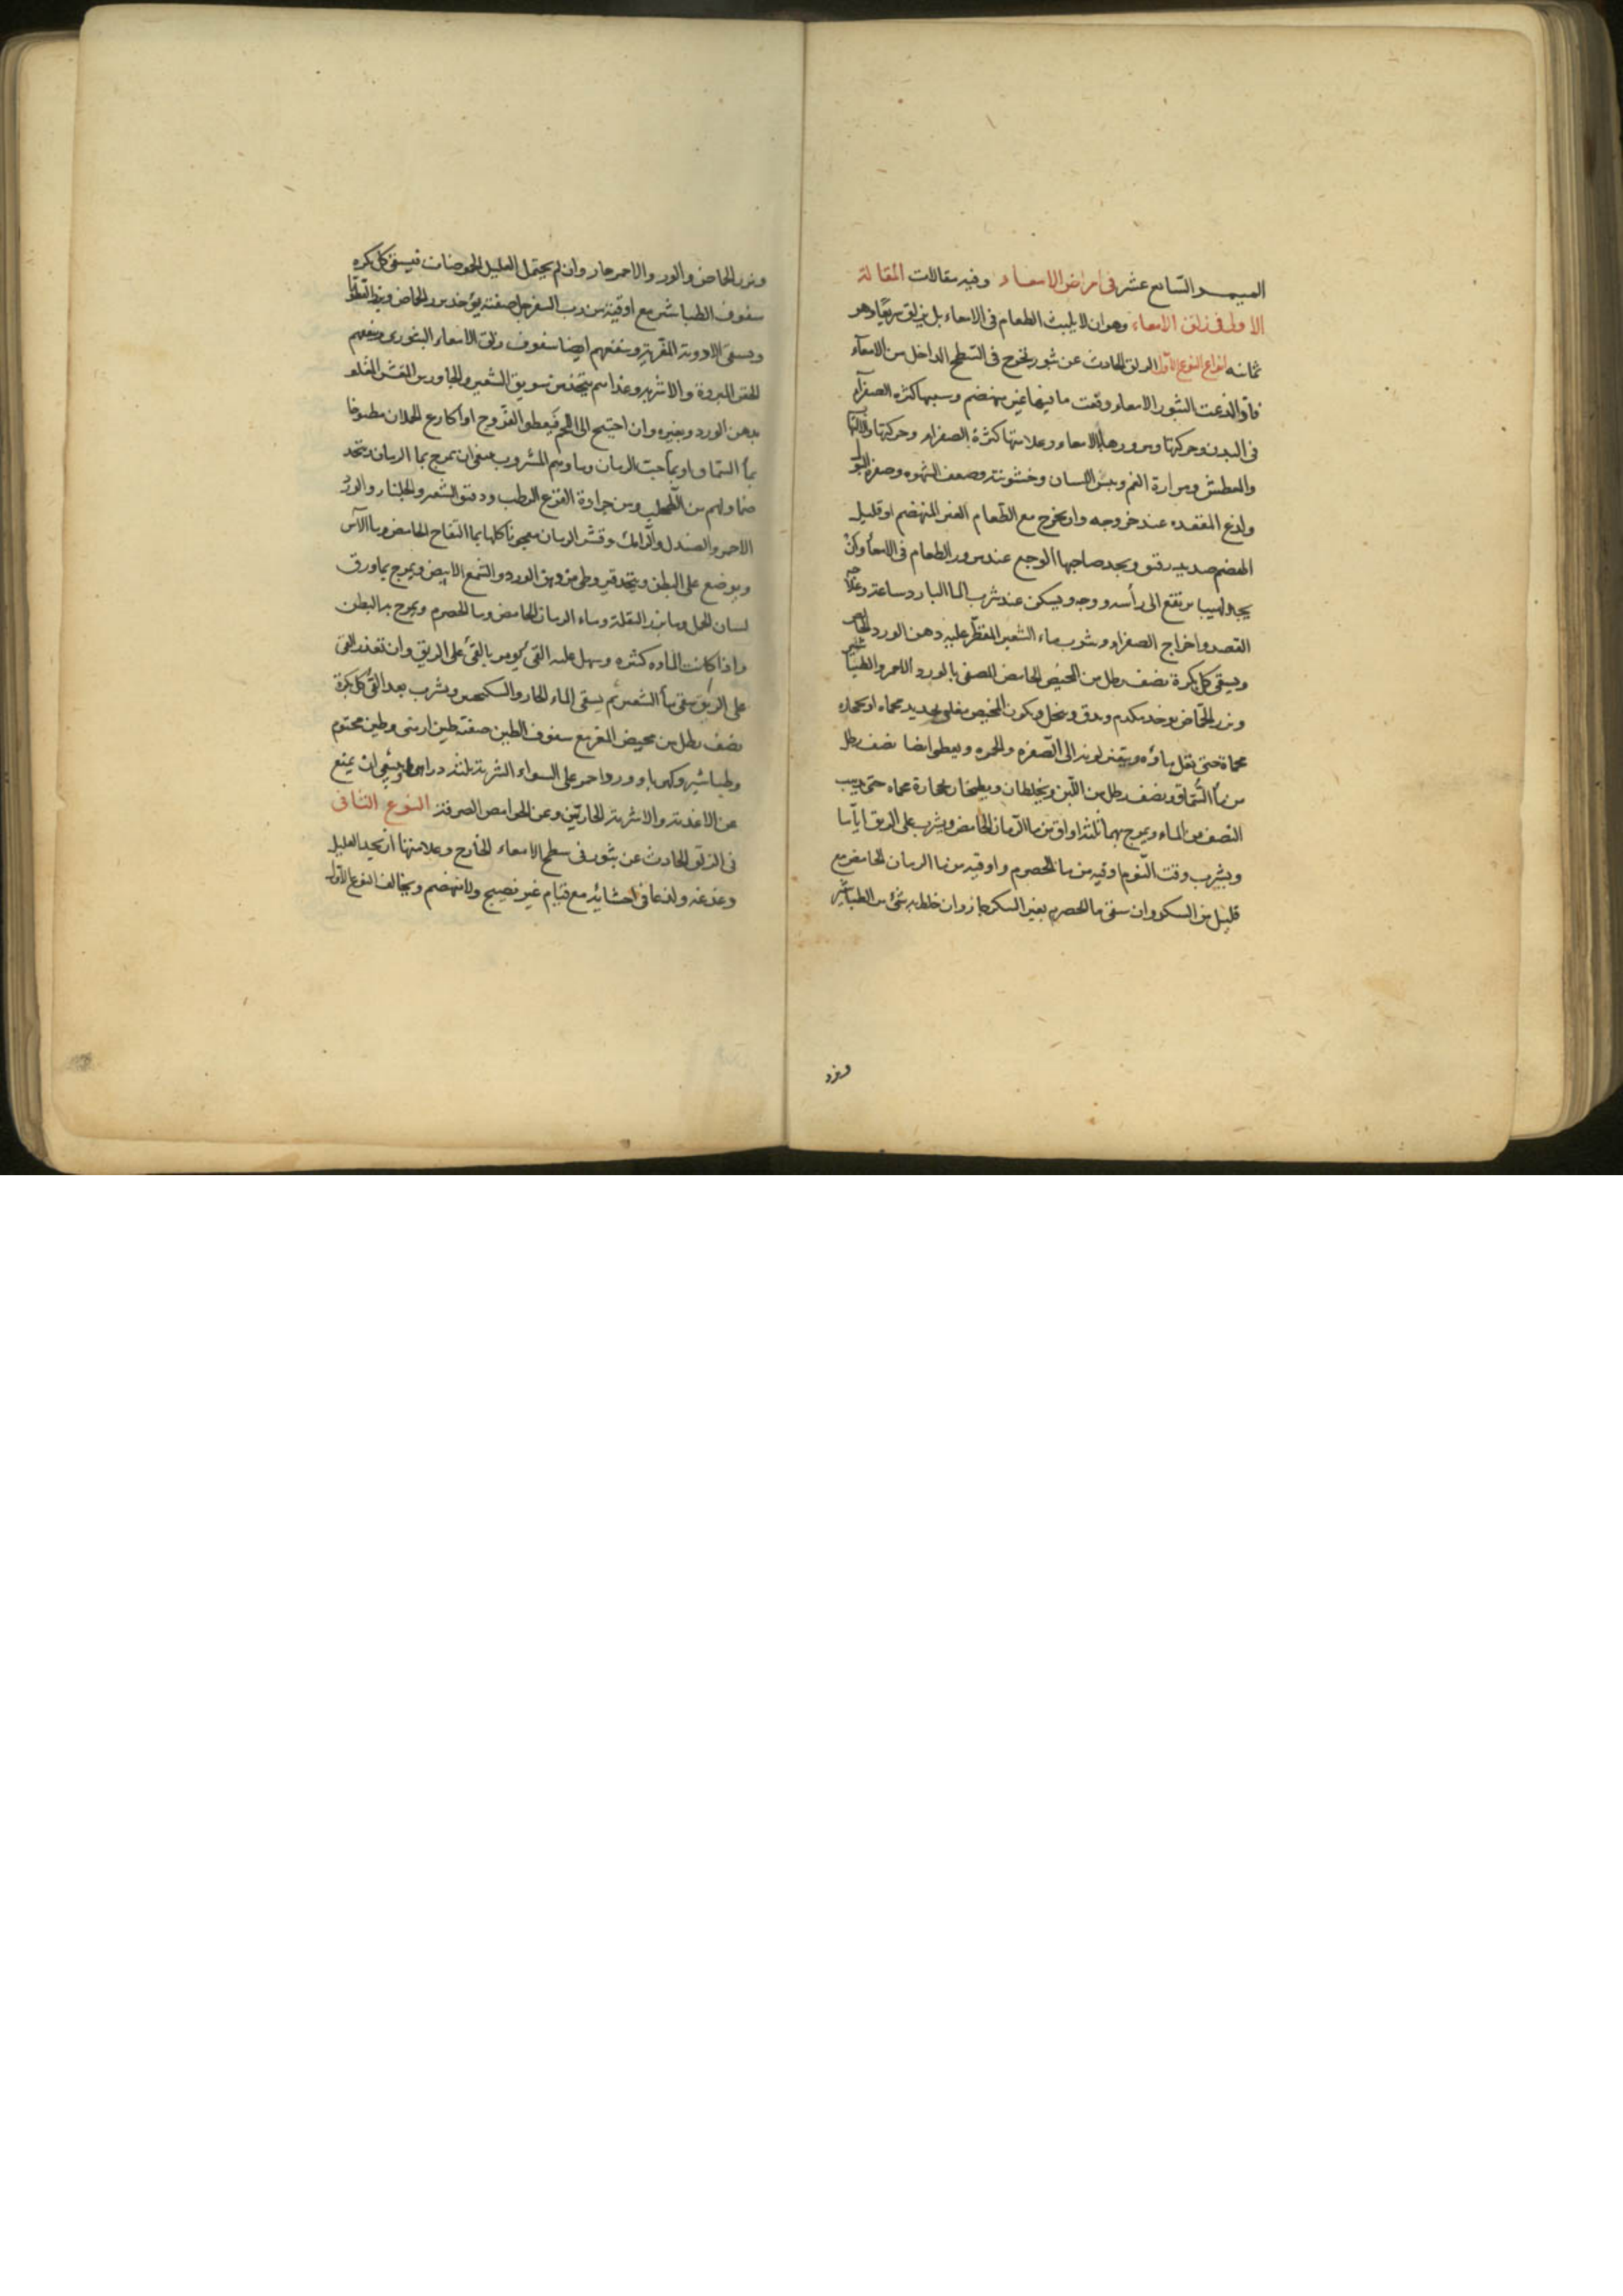 التاسع عشر في امراض الامعاء وفيه مقالات المقالة
الاولى في زلق الامعاء وهو ان لا يلبث الطعام في الامعاء بل يزلق سريعا وهو
ثمانيه انواع النوع الاول الزلق الحادث عن بثور تخرج في السطح الداخل من الامعآء
فاذا لذعت البثور الامعاء دفعت ما فيها غير منهضم وسببها كثره الصفرآء
في البدن وحركتها ومرورها بالامعاء وعلامتها كثرة الصفراء وحركتها
والعطش ومرارة الفم ويبس اللسان وخشونته وضعف الشهوه وصفره
ولذع المقعده عند خروجه وان يخرج مع الطعام الغير المنهضم او قليل
الهضم صديد رقيق ويجد صاحبها الوجع عند مرور الطعام في الامعاء وكان
يجد لهيبا يرتفع الى رأسه ووجهه ويسكن عند شرب الما البارد ساعة وعلاجه
الفصد واخراج الصفراء وشرب ماء الشعير المقطر عليه دهن الورد الخالص
ويسقى كل بكرة نصف رطل من المخيض الحامض المصفى بالورد الاحمر والطباشير
وبزر الحماض يوخذ ويدق وينخل ويكون المخيض مغلى بحديد محماه او بحجاره
محماة حتى يقل ماؤه ويتغير لونه الى الصفره والحمره ويعطى ايضا نصف رطل
من مأ السماق ونصف رطل من اللبن ويخلطان ويطبخان بحجارة محماه حتى يذهب
النصف من الماء ويمزج بهما ثلثة اواق من ما الرمان الحامض ويشرب على الريق اياما
ويشرب وقت النوم اوقيه من ما الحصرم واوقيه من ما الرمان الحامض مع
قليل من السكر وان سقى ما الحصرم بغير السكر جاز وان خلط به شئ من الطباشير
وبزر
وبزر الحماض والورد والاحمر جاز وان لم يحتمل العليل الحموضات فيسقى كل بكره
سفوف الطباشير مع اوقية من رب السفرجل صفته يؤخذ بزر الحماض وبزر القطونا
ويسقى الادوية المقرية وينفعهم ايضا سفوف زلق الامعاء البثورى وينفعهم
الحقن المبردة والاشربه وغذاهم يتخذ من سويق الشعير والجاورس المقشر المقلو
بدهن الورد وبغيره وان احتيج الى اللحم فيعطى الفروج او اكارع الحملان مطبوخا
بمأ السماق او بمأ حب الرمان وماؤهم المشروب ينبغى ان يمزج بما الرمان ويتخذ
ضمادا لهم من الطحلب ومن جرادة القرع الرطب ودقيق الشعير والجلنار والورد
الاحمر والصندل والرامك وقشر الرمان معجونا كلها بما التفاح الحامض وما الآس
ويوضع على البطن ويتخذ قيروطى من دهن الورد والشمع الابيض ويمزج بما ورق
لسان الحمل وما بزر البقلة وماء الرمان الحامض وما الحصرم ويمرخ به البطن
واذا كانت الماده كثيره وسهل عليه القئ يومر بالقئ على الريق وان تعذر القئ
على الريق سقى مأ الشعير ثم يسقى الماء الحار والسكنجبين ويشرب بعد القئ كل بكرة
نصف رطل من مخيض البقر مع سفوف الطين صفته طين ارمنى وطين مختوم
وطباشير وكهربا وورد احمر على السواء الشربة ثلثة دراهم وينبغي ان يمنع
عن الاغذية والاشربة الحارتين وعن الحوامض الصرفة النوع الثانى
فى الزلق الحادث عن بثور فى سطح الامعاء الخارج وعلامتها ان يجد العليل
دغدغه ولذعا فى احشائه مع قيام غير نضيج ولا منهضم ويخالف النوع الاول